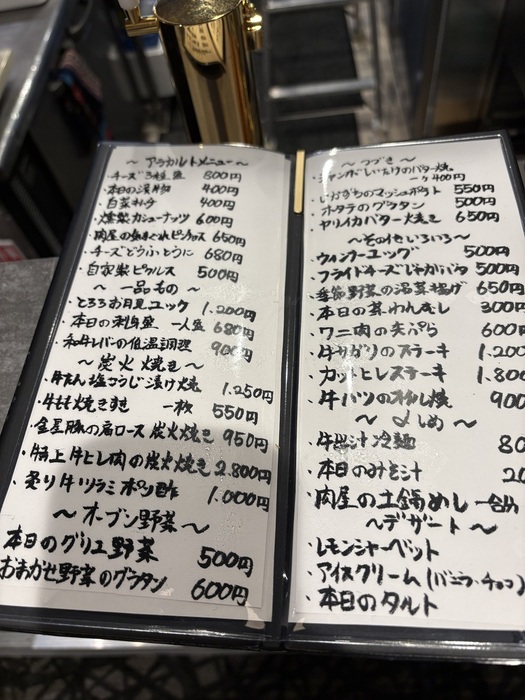 〜 アラカルトメニュー 〜
・チーズ3種盛 800円
・本日の漬物 400円
・白菜キムチ 400円
・燻製カシューナッツ 600円
・肉屋の気まぐれピンチョス 650円
・チーズどうふとうに 680円
・自家製ピクルス 500円
〜 一品もの 〜
・とろろお月見ユック 1.200円
・本日の刺身盛 一人盛 680円
・和牛レバーの低温調理 900円
〜 炭火焼き 〜
・牛たん塩こうじ漬け焼 1.250円
・牛もも焼きすき 一枚 550円
・金星豚の肩ロース炭火焼き 950円
・特上牛ヒレ肉の炭火焼き 2.800円
・炙り牛ツラミポン酢 1.000円
〜 オーブン野菜 〜
本日のグリエ野菜 500円
おまかせ野菜のグラタン 600円
〜 つづき 〜
・ジャンボしいたけのバター焼
一ヶ400円
・じゃがいものマッシュポテト 550円
・ホタテのグラタン 500円
・ヤリイカバター焼き 650円
〜その他いろいろ〜
・ウィンナーエッグ 500円
・フライドチーズじゃがバタ 500円
・季節野菜の温菜揚げ 650円
・本日の茶わんむし 300円
・ワニ肉の天ぷら 600円
・牛サガリのステーキ 1.200
・カットヒレステーキ 1.800
・牛ハツの刺し焼 900
〜 〆しめ 〜
・牛出汁冷麺 80
・本日のみそ汁 20
・肉屋の土鍋めし 一合八
〜デザート〜
・レモンシャーベット
・アイスクリーム(バニラ・チョコ)
・本日のタルト